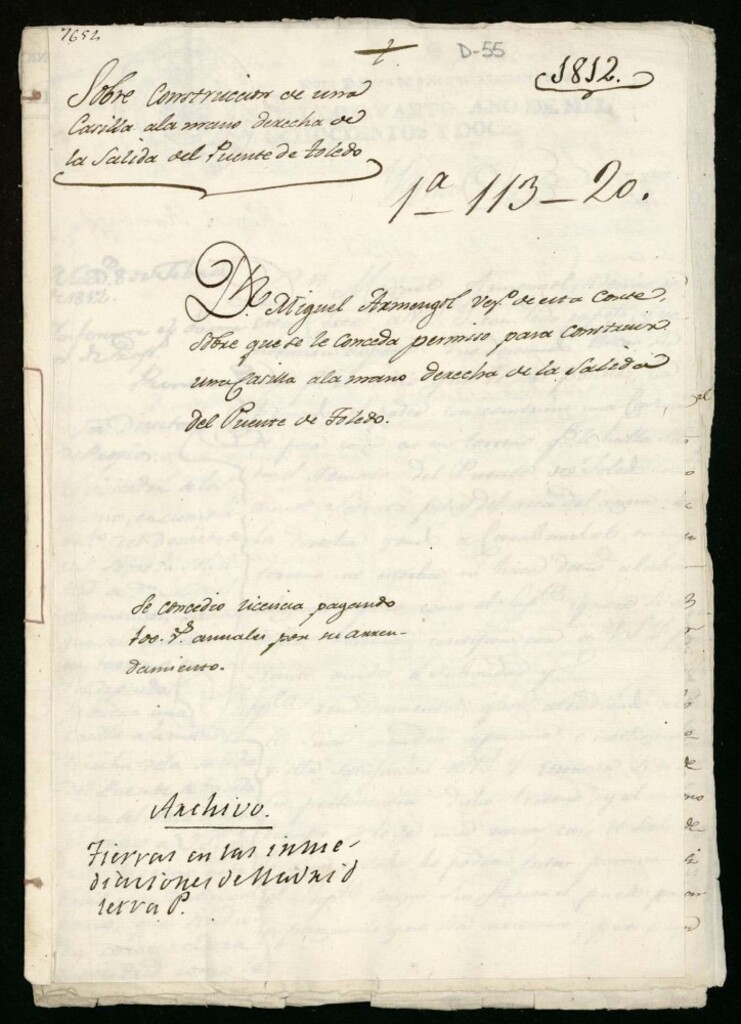 7652
D-55
1812.
Sobre Construccion de una
Casilla a la mano derecha de
la Salida del Puente de toledo
1ª 113-20.
Dn. Miguel Armengol Vezº. de esta Corte,
sobre que se le Conceda permiso para Construir
una Casilla a la mano derecha de la Salida
del Puente de Toledo.
Se concedio licencia pagando
100. rs. annales por su arren-
damiento.
Archivo.
Tierras en las inme-
diaciones de Madrid
letra P.